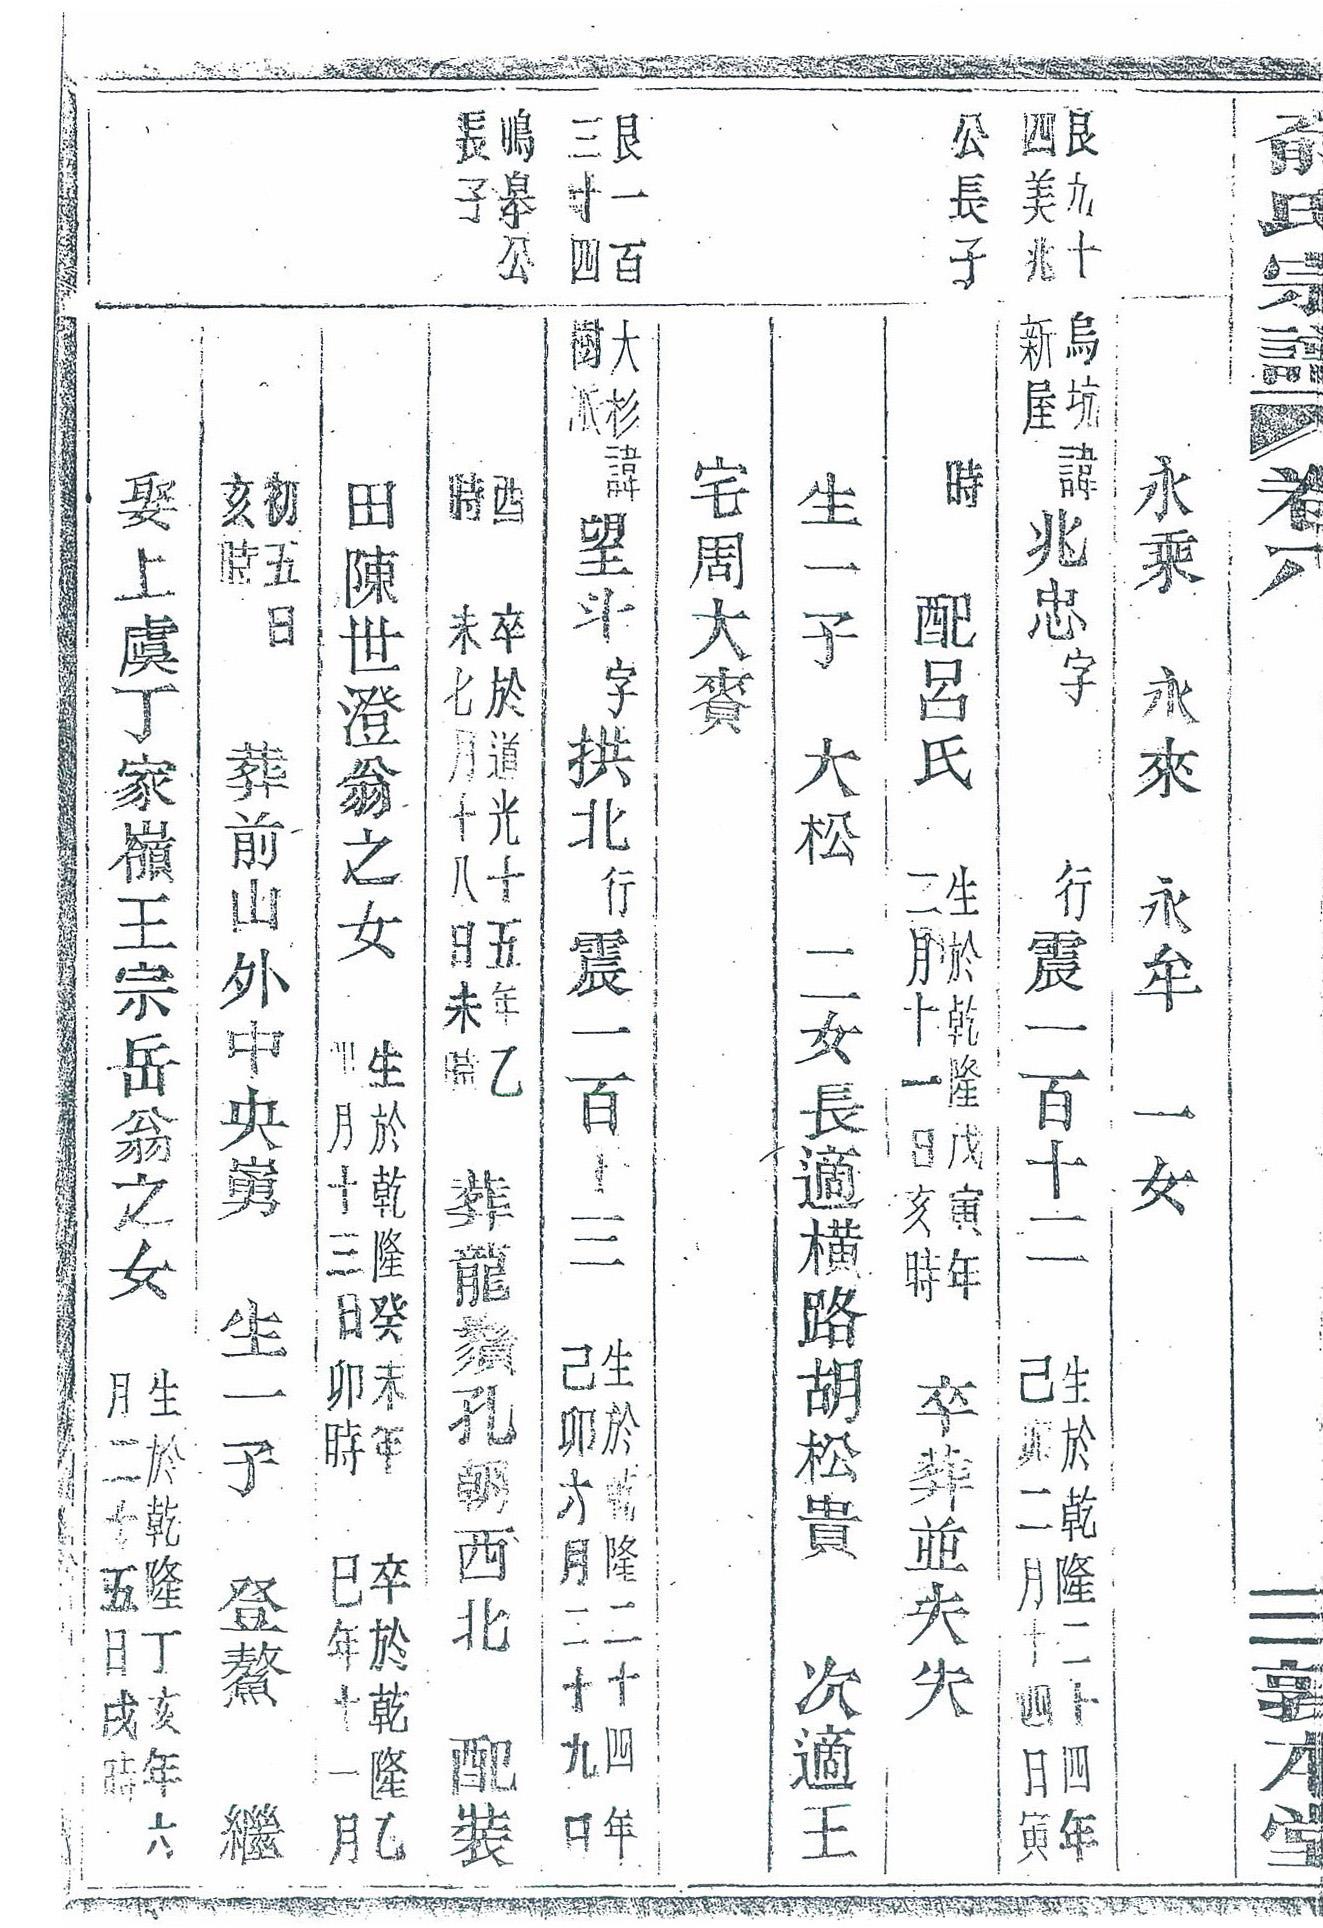 俞氏宗譜 卷八 三 敦本堂
永乘 永來 永牟 一女
艮九十
四美兆
公長子
烏坑
新屋
諱兆忠字 行震一百十二 生於乾隆二十四年
己卯二月十四日寅
時 配呂氏 生於乾隆戊寅年
二月十一日亥時 卒葬並失失
生一子 大松 二女長適橫路胡松貴 次適王
宅周大賚
艮一百
三十四
鳴皋公
長子
大杉
樹派
諱望斗字拱北行震一百十三 生於乾隆二十四年
己卯六月二十九日
酉
時 卒於道光十五年乙
未七月十八日未時 葬龍鬚孔朝西北 配裝
田陳世澄翁之女 生於乾隆癸未年
四月十三日卯時 卒於乾隆乙
巳年十一月
初五日
亥時 葬前山外中央嶴 生一子 登鰲 繼
娶上虞丁家嶺王宗岳翁之女 生於乾隆丁亥年六
月二十五日戌時